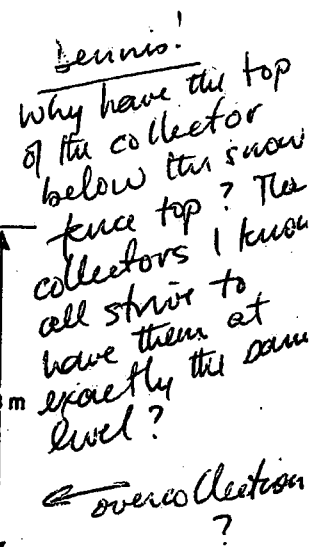 Dennis!
Why have the top
of the collector
below the snow
fence top? The
collectors I know
all strive to
have them at
m exactly the same
level?
← overcollection
?